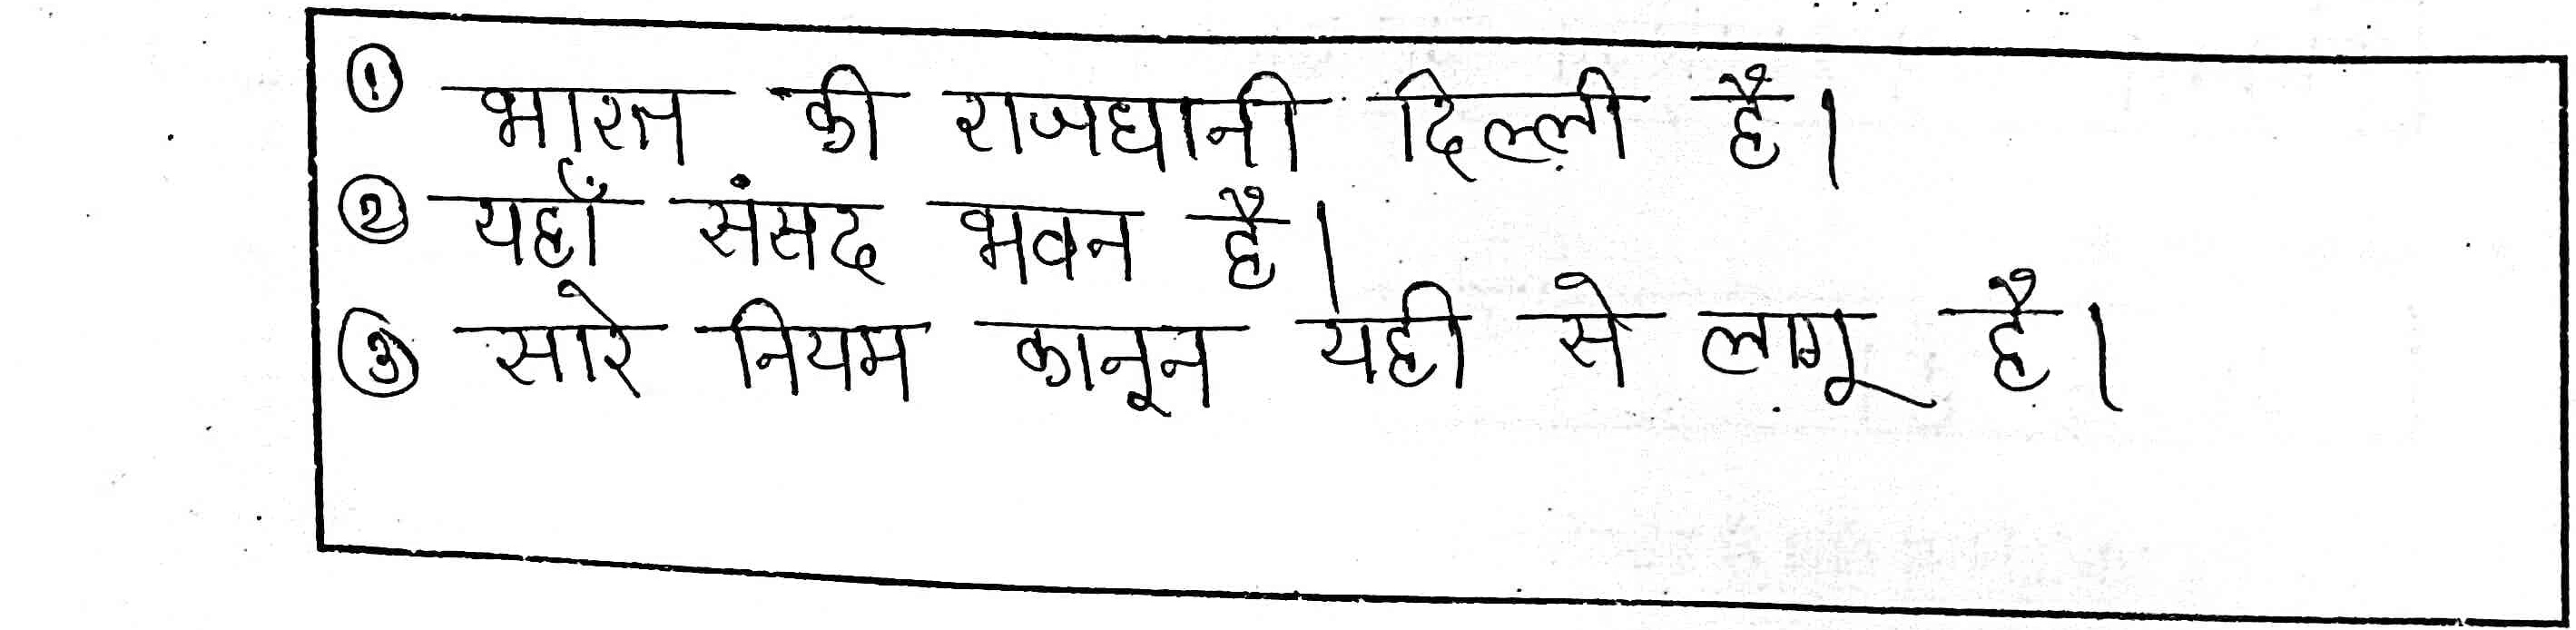 ① भारत की राजधानी दिल्ली है।
② यहाँ संसद भवन है।
③ सारे नियम कानून यही से लागू है।